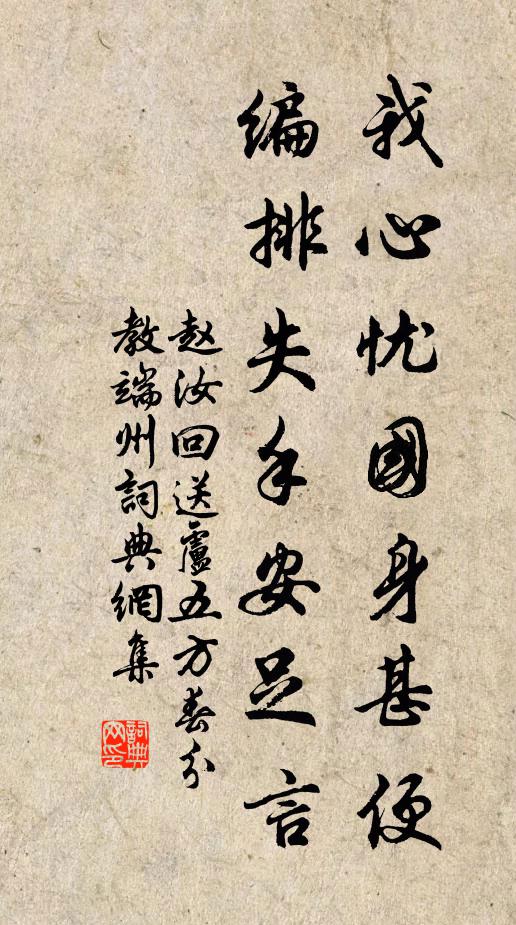 我心忧國身甚便
编排失手安足言
赵汝回送盧五方春分
教端州詞典網集
詞典